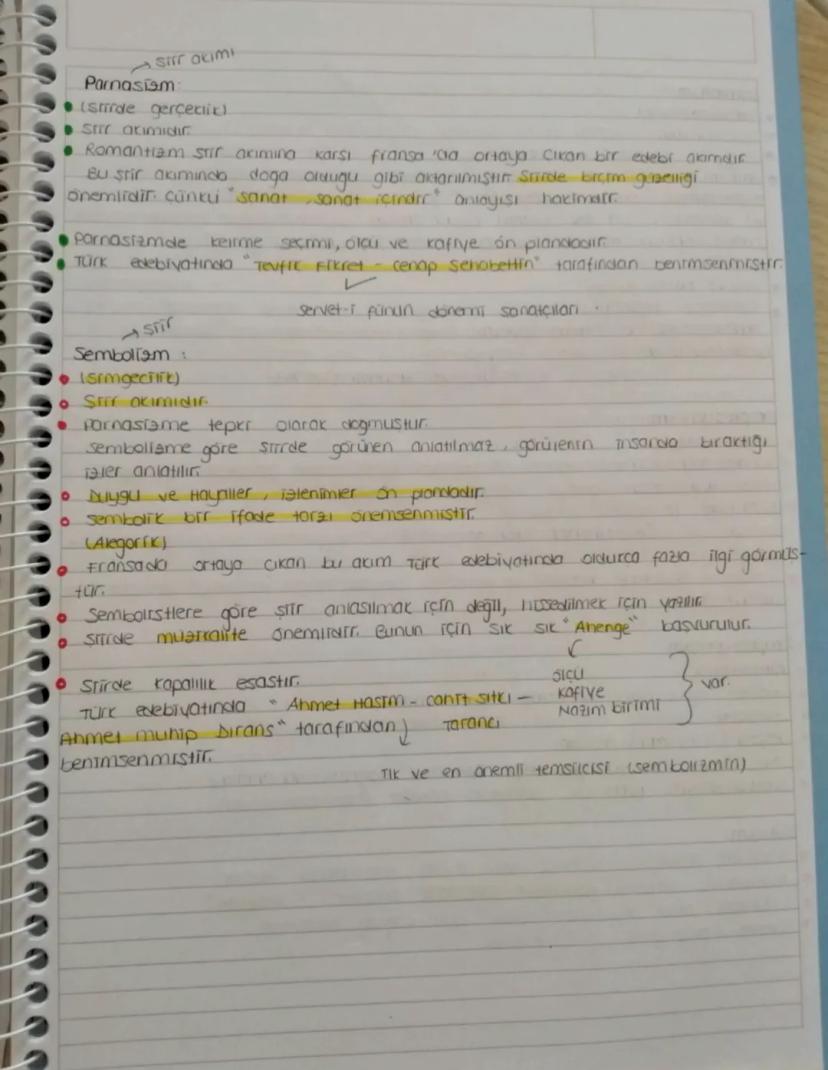 → şiir akımı
Parnasizm:
(şiirde gerçeklik)
Şiir akımıdır.
Romantizm şiir akımına karşı fransa'da ortaya çıkan bir edebi akımdır.
Bu şiir akımında doğa olduğu gibi aktarılmıştır. Şiirde biçim güzelliği
önemlidir. Çünkü "sanat, sanat içindir" anlayışı hakimdir.
Parnasizmde kelime seçimi, ölçü ve kafiye ön plandadır.
Türk edebiyatında "Tevfik Fikret - Cenap Şehabettin" tarafından benimsenmiştir.
Servet-i fünun dönemi sanatçıları.
→ şiir
Sembolizm :
(simgecilik)
Şiir akımıdır.
Parnasizme tepki olarak doğmuştur.
Sembolizme göre şiirde görünen anlatılmaz, görülenin insanda bıraktığı
izler anlatılır.
Duygu ve Hayaller, izlenimler ön plandadır.
Sembolik bir ifade tarzı önemsenmiştir.
(Alegorik)
Fransada ortaya çıkan bu akım Türk edebiyatında oldukca fazla ilgi görmüş-
tür.
Sembolistlere göre şiir anlaşılmak için değil, hissedilmek için yazılır.
Şiirde muzikalite önemlidir. Bunun için sık sık "Ahenge" başvurulur.
ölçü
Kafiye
Nazım birimi
var.
Şiirde kapalılık esastır.
Türk edebiyatında "Ahmet Haşim - cahit sıtkı -
Tarancı
Ahmet muhip Dıranas" tarafından
benimsenmiştir.
ilk ve en önemli temsilcisi (sembolizmin)